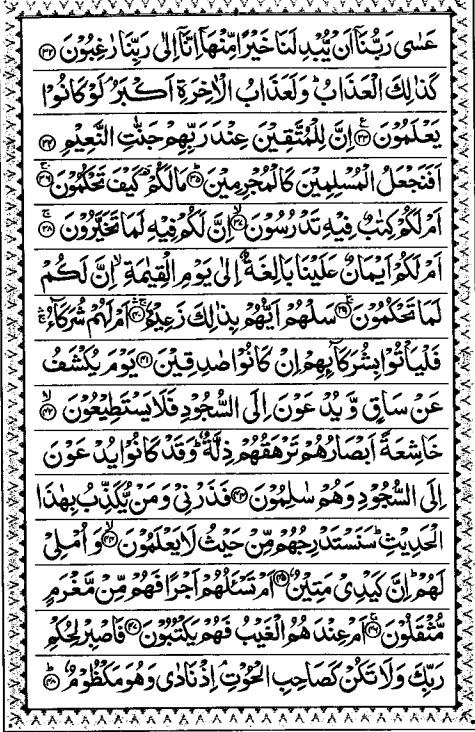 عَسٰى رَبُّنَاۤ اَنْ يُّبْدِلَنَا خَيْرًا مِّنْهَاۤ اِنَّاۤ اِلٰى رَبِّنَا رٰغِبُوْنَ ﴿۳۲﴾
كَذٰلِكَ الْعَذَابُ ؕ وَلَعَذَابُ الْاٰخِرَةِ اَكْبَرُ ۘ لَوْ كَانُوْا
يَعْلَمُوْنَ ﴿۳۳﴾ اِنَّ لِلْمُتَّقِيْنَ عِنْدَ رَبِّهِمْ جَنّٰتِ النَّعِيْمِ ﴿۳۴﴾
اَفَنَجْعَلُ الْمُسْلِمِيْنَ كَالْمُجْرِمِيْنَ ﴿۳۵﴾ مَا لَكُمْ ۥ كَيْفَ تَحْكُمُوْنَ ﴿۳۶﴾
اَمْ لَكُمْ كِتٰبٌ فِيْهِ تَدْرُسُوْنَ ﴿۳۷﴾ اِنَّ لَكُمْ فِيْهِ لَمَا تَخَيَّرُوْنَ ﴿۳۸﴾
اَمْ لَكُمْ اَيْمَانٌ عَلَيْنَا بَالِغَةٌ اِلٰى يَوْمِ الْقِيٰمَةِ ۙ اِنَّ لَكُمْ
لَمَا تَحْكُمُوْنَ ﴿۳۹﴾ سَلْهُمْ اَيُّهُمْ بِذٰلِكَ زَعِيْمٌ ﴿۴۰﴾ اَمْ لَهُمْ شُرَكَآءُ ۛۚ
فَلْيَاْتُوْا بِشُرَكَآئِهِمْ اِنْ كَانُوْا صٰدِقِيْنَ ﴿۴۱﴾ يَوْمَ يُكْشَفُ
عَنْ سَاقٍ وَّيُدْعَوْنَ اِلَى السُّجُوْدِ فَلَا يَسْتَطِيْعُوْنَ ﴿۴۲﴾
خَاشِعَةً اَبْصَارُهُمْ تَرْهَقُهُمْ ذِلَّةٌ ؕ وَقَدْ كَانُوْا يُدْعَوْنَ
اِلَى السُّجُوْدِ وَهُمْ سٰلِمُوْنَ ﴿۴۳﴾ فَذَرْنِيْ وَمَنْ يُّكَذِّبُ بِهٰذَا
الْحَدِيْثِ ؕ سَنَسْتَدْرِجُهُمْ مِّنْ حَيْثُ لَا يَعْلَمُوْنَ ﴿۴۴﴾ وَاُمْلِيْ
لَهُمْ ؕ اِنَّ كَيْدِيْ مَتِيْنٌ ﴿۴۵﴾ اَمْ تَسْـَٔلُهُمْ اَجْرًا فَهُمْ مِّنْ مَّغْرَمٍ
مُّثْقَلُوْنَ ﴿۴۶﴾ اَمْ عِنْدَهُمُ الْغَيْبُ فَهُمْ يَكْتُبُوْنَ ﴿۴۷﴾ فَاصْبِرْ لِحُكْمِ
رَبِّكَ وَلَا تَكُنْ كَصَاحِبِ الْحُوْتِ ۘ اِذْ نَادٰى وَهُوَ مَكْظُوْمٌ ﴿۴۸﴾